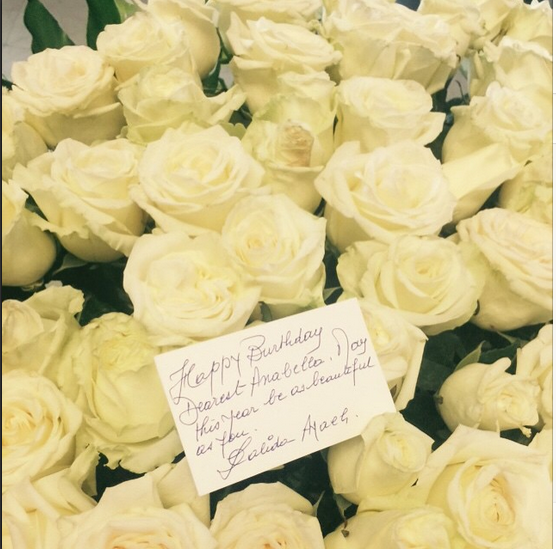 Happy Birthday
Dearest Anabella. May
this year be as beautiful
as you.